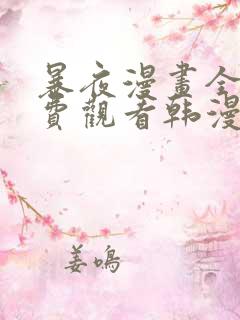 暴夜漫畫全
費觀看韩漫
姜鳴